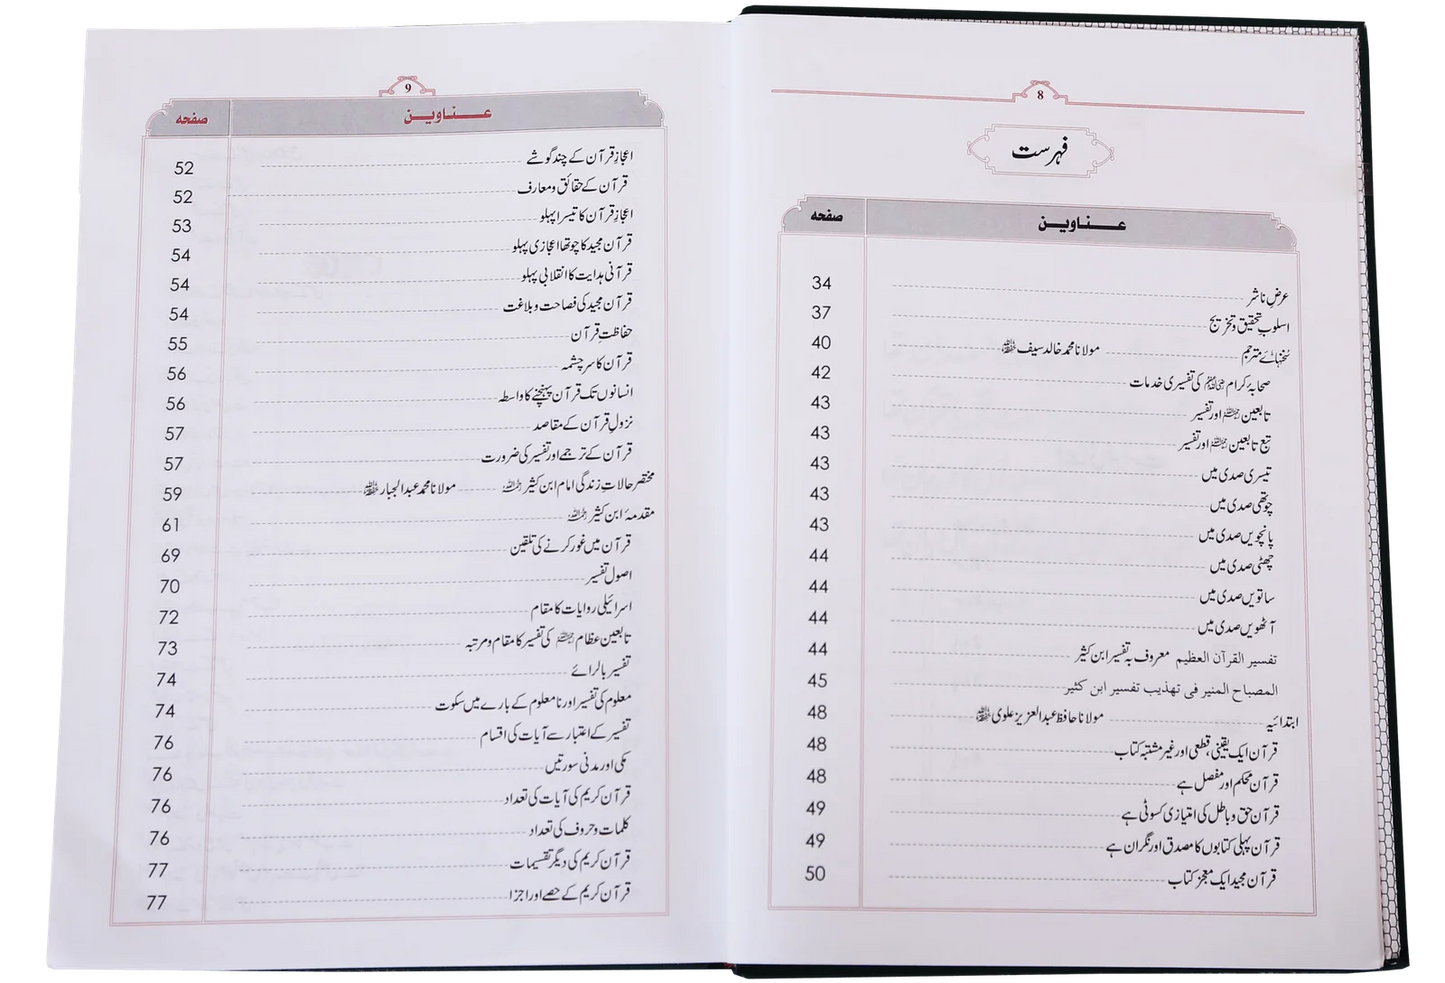 8
فہرست
عناوین صفحہ
عرضِ ناشر 34
اسلوبِ تحقیق و تخریج 37
سخنہائے مترجم مولانا محمد خالد سیف 40
صحابۂ کرام کی تفسیری خدمات 42
تابعین اور تفسیر 43
تبع تابعین اور تفسیر 43
تیسری صدی میں 43
چوتھی صدی میں 43
پانچویں صدی میں 43
چھٹی صدی میں 44
ساتویں صدی میں 44
آٹھویں صدی میں 44
تفسير القرآن العظيم معروف بہ تفسیر ابن کثیر 44
المصباح المنير فى تهذيب تفسير ابن كثير 45
ابتدائیہ مولانا حافظ عبدالعزیز علوی 48
قرآن ایک یقینی، قطعی اور غیر مشتبہ کتاب 48
قرآن محکم اور مفصل ہے 48
قرآن حق و باطل کی امتیازی کسوٹی ہے 49
قرآن پہلی کتابوں کا مصدق اور نگران ہے 49
قرآن مجید ایک معجز کتاب 50
9
عناوین صفحہ
اعجازِ قرآن کے چند گوشے 52
قرآن کے حقائق و معارف 52
اعجازِ قرآن کا تیسرا پہلو 53
قرآن مجید کا چوتھا اعجازی پہلو 54
قرآنی ہدایت کا انقلابی پہلو 54
قرآن مجید کی فصاحت و بلاغت 54
حفاظتِ قرآن 55
قرآن کا سرچشمہ 56
انسانوں تک قرآن پہنچنے کا واسطہ 56
نزولِ قرآن کے مقاصد 57
قرآن کے ترجمے اور تفسیر کی ضرورت 57
مختصر حالاتِ زندگی امام ابن کثیر مولانا محمد عبدالجبار 59
مقدمۂ ابن کثیر 61
قرآن میں غور کرنے کی تلقین 69
اصولِ تفسیر 70
اسرائیلی روایات کا مقام 72
تابعین عظام کی تفسیر کا مقام و مرتبہ 73
تفسیر بالرائے 74
معلوم کی تفسیر اور نامعلوم کے بارے میں سکوت 74
تفسیر کے اعتبار سے آیات کی اقسام 76
مکی اور مدنی سورتیں 76
قرآن کریم کی آیات کی تعداد 76
کلمات و حروف کی تعداد 76
قرآن کریم کی دیگر تقسیمات 77
قرآن کریم کے حصے اور اجزا 77